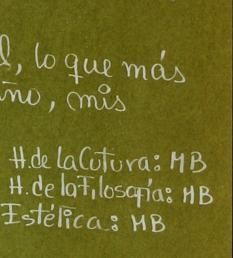 l, lo que más
ño, mis
H. de la Cutura: MB
H. de la Filosofía: MB
Estética: MB